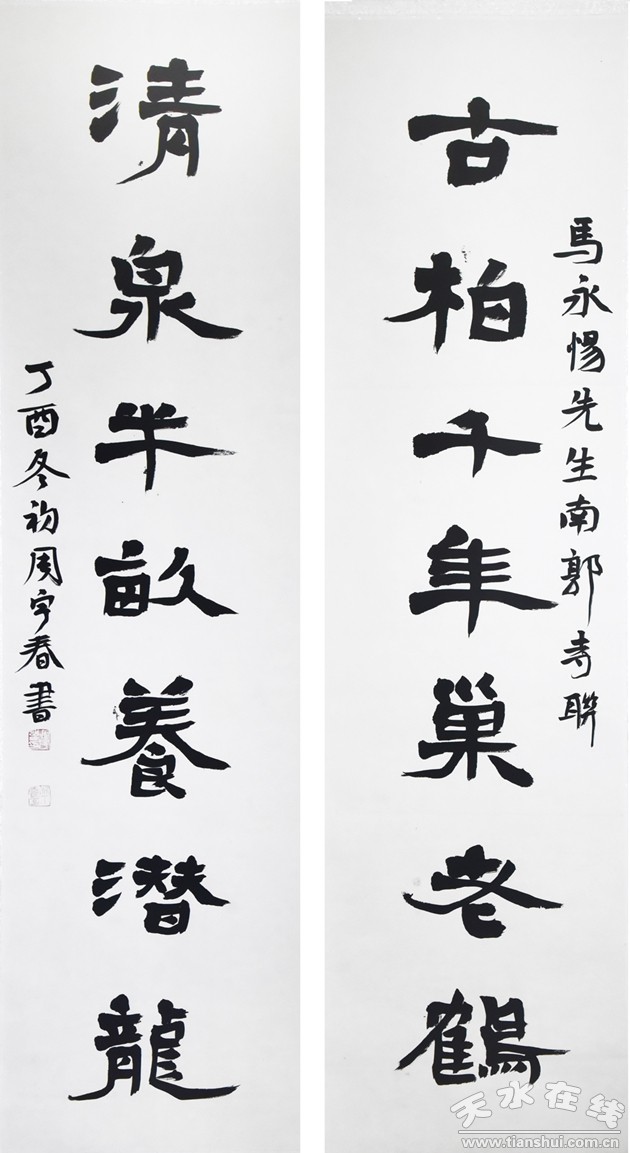 馬永惕先生南郭寺聯
古柏千年巢老鶴
清泉半畝養潛龍
丁酉冬初周宇春書
天水在线
www.tianshui.com.cn